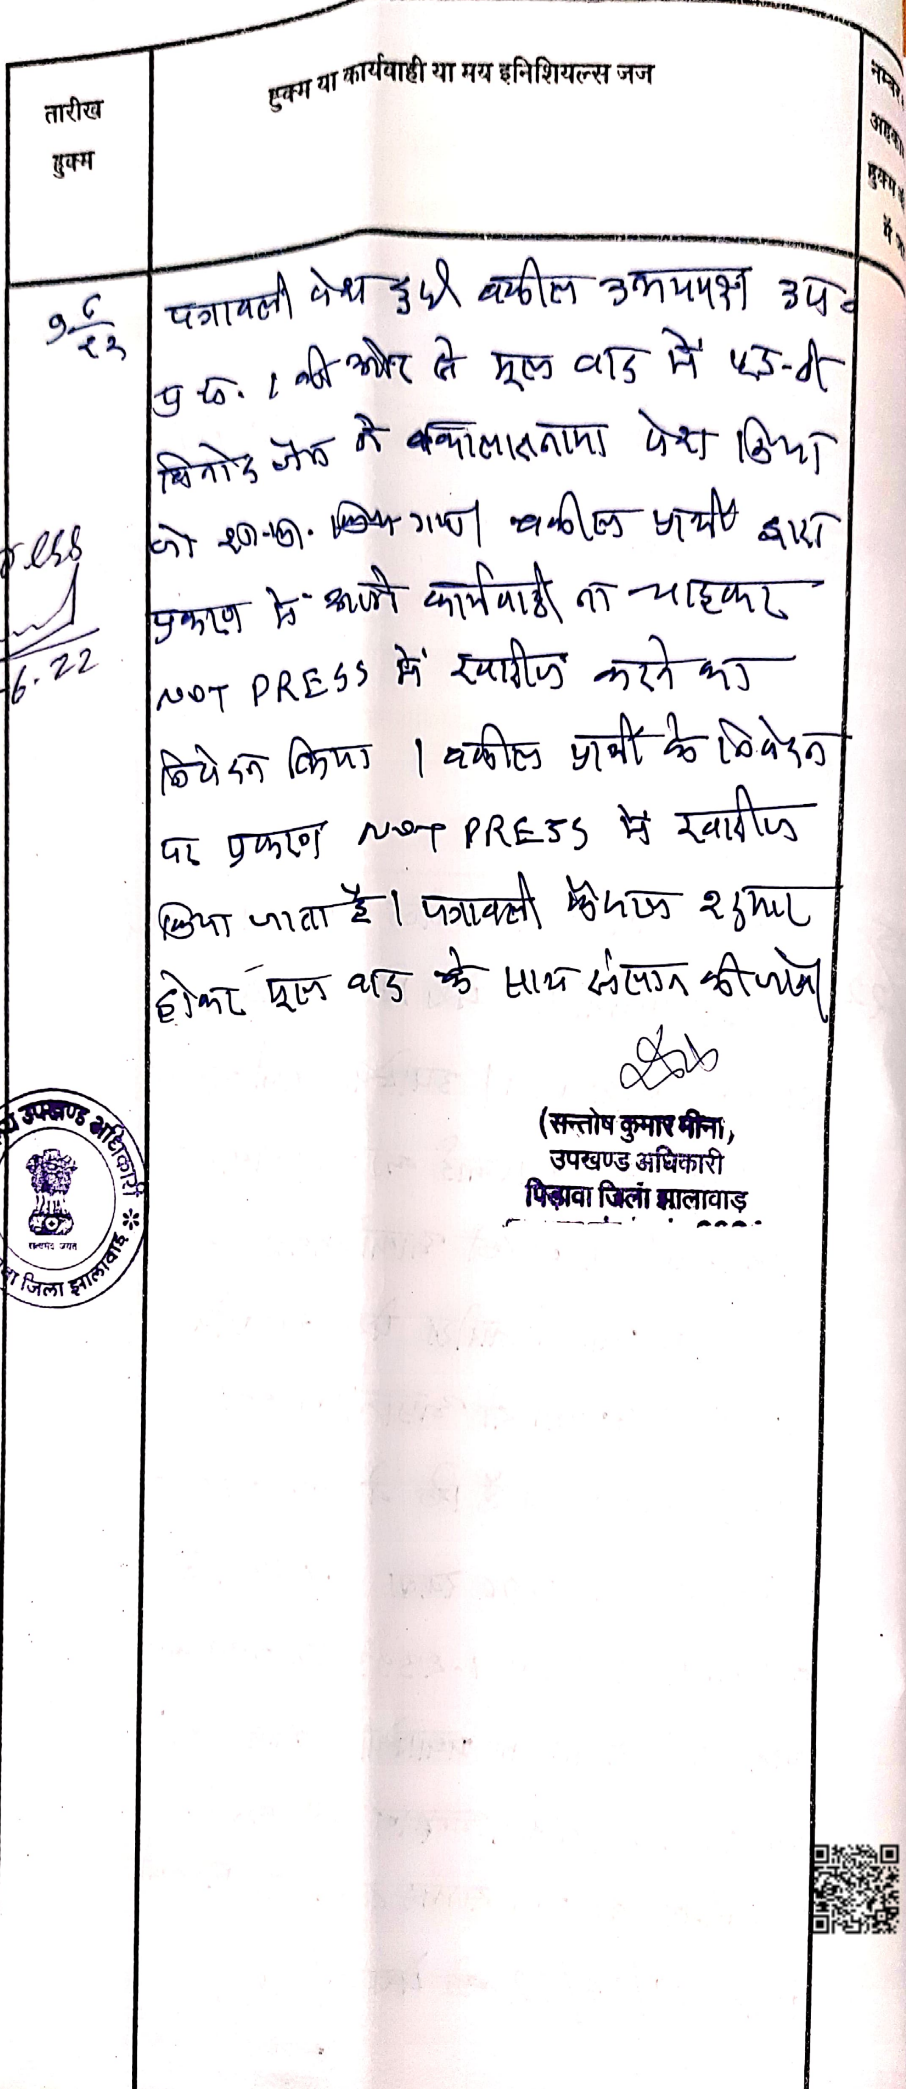 तारीख
हुक्म
हुक्म या कार्यवाही या मय इनिशियल्स जज
नम्बर
हुक्म
में
पत्रावली पेश हुई वकील उभयपक्ष उप०
प्र सं. 1 की ओर से मूल वाद में एड-वो
विनोद जैन ने वकालातनामा पेश किया
जो शा-मि. किया गया। वकील प्रार्थी द्वारा
प्रकरण में आगे कार्यवाही ना चाहकर
NOT PRESS में खारीज करने का
निवेदन किया । वकील प्रार्थी के निवेदन
पर प्रकरण NOT PRESS में खारीज
किया जाता है। पत्रावली फैसल शुमार
होकर मूल वाद के साथ संलग्न की जावे।
6.22
(सन्तोष कुमार मीना)
उपखण्ड अधिकारी
पिड़ावा जिला झालावाड़
उपखण्ड अधिकारी
सत्यमेव जयते
जिला झालावाड़